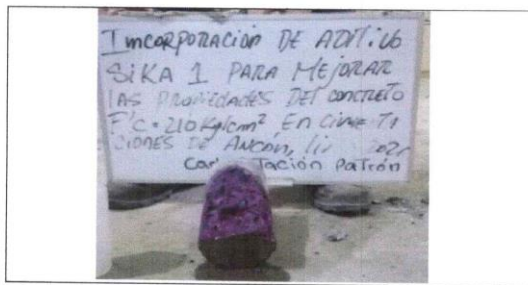 Incorporación DE ADITIVO
SIKA 1 PARA MEJORAR
LAS PROPIEDADES DEL CONCRETO
F'C = 210 Kg/cm² EN CIMENTA
CIONES DE ANCÓN,
Patrón